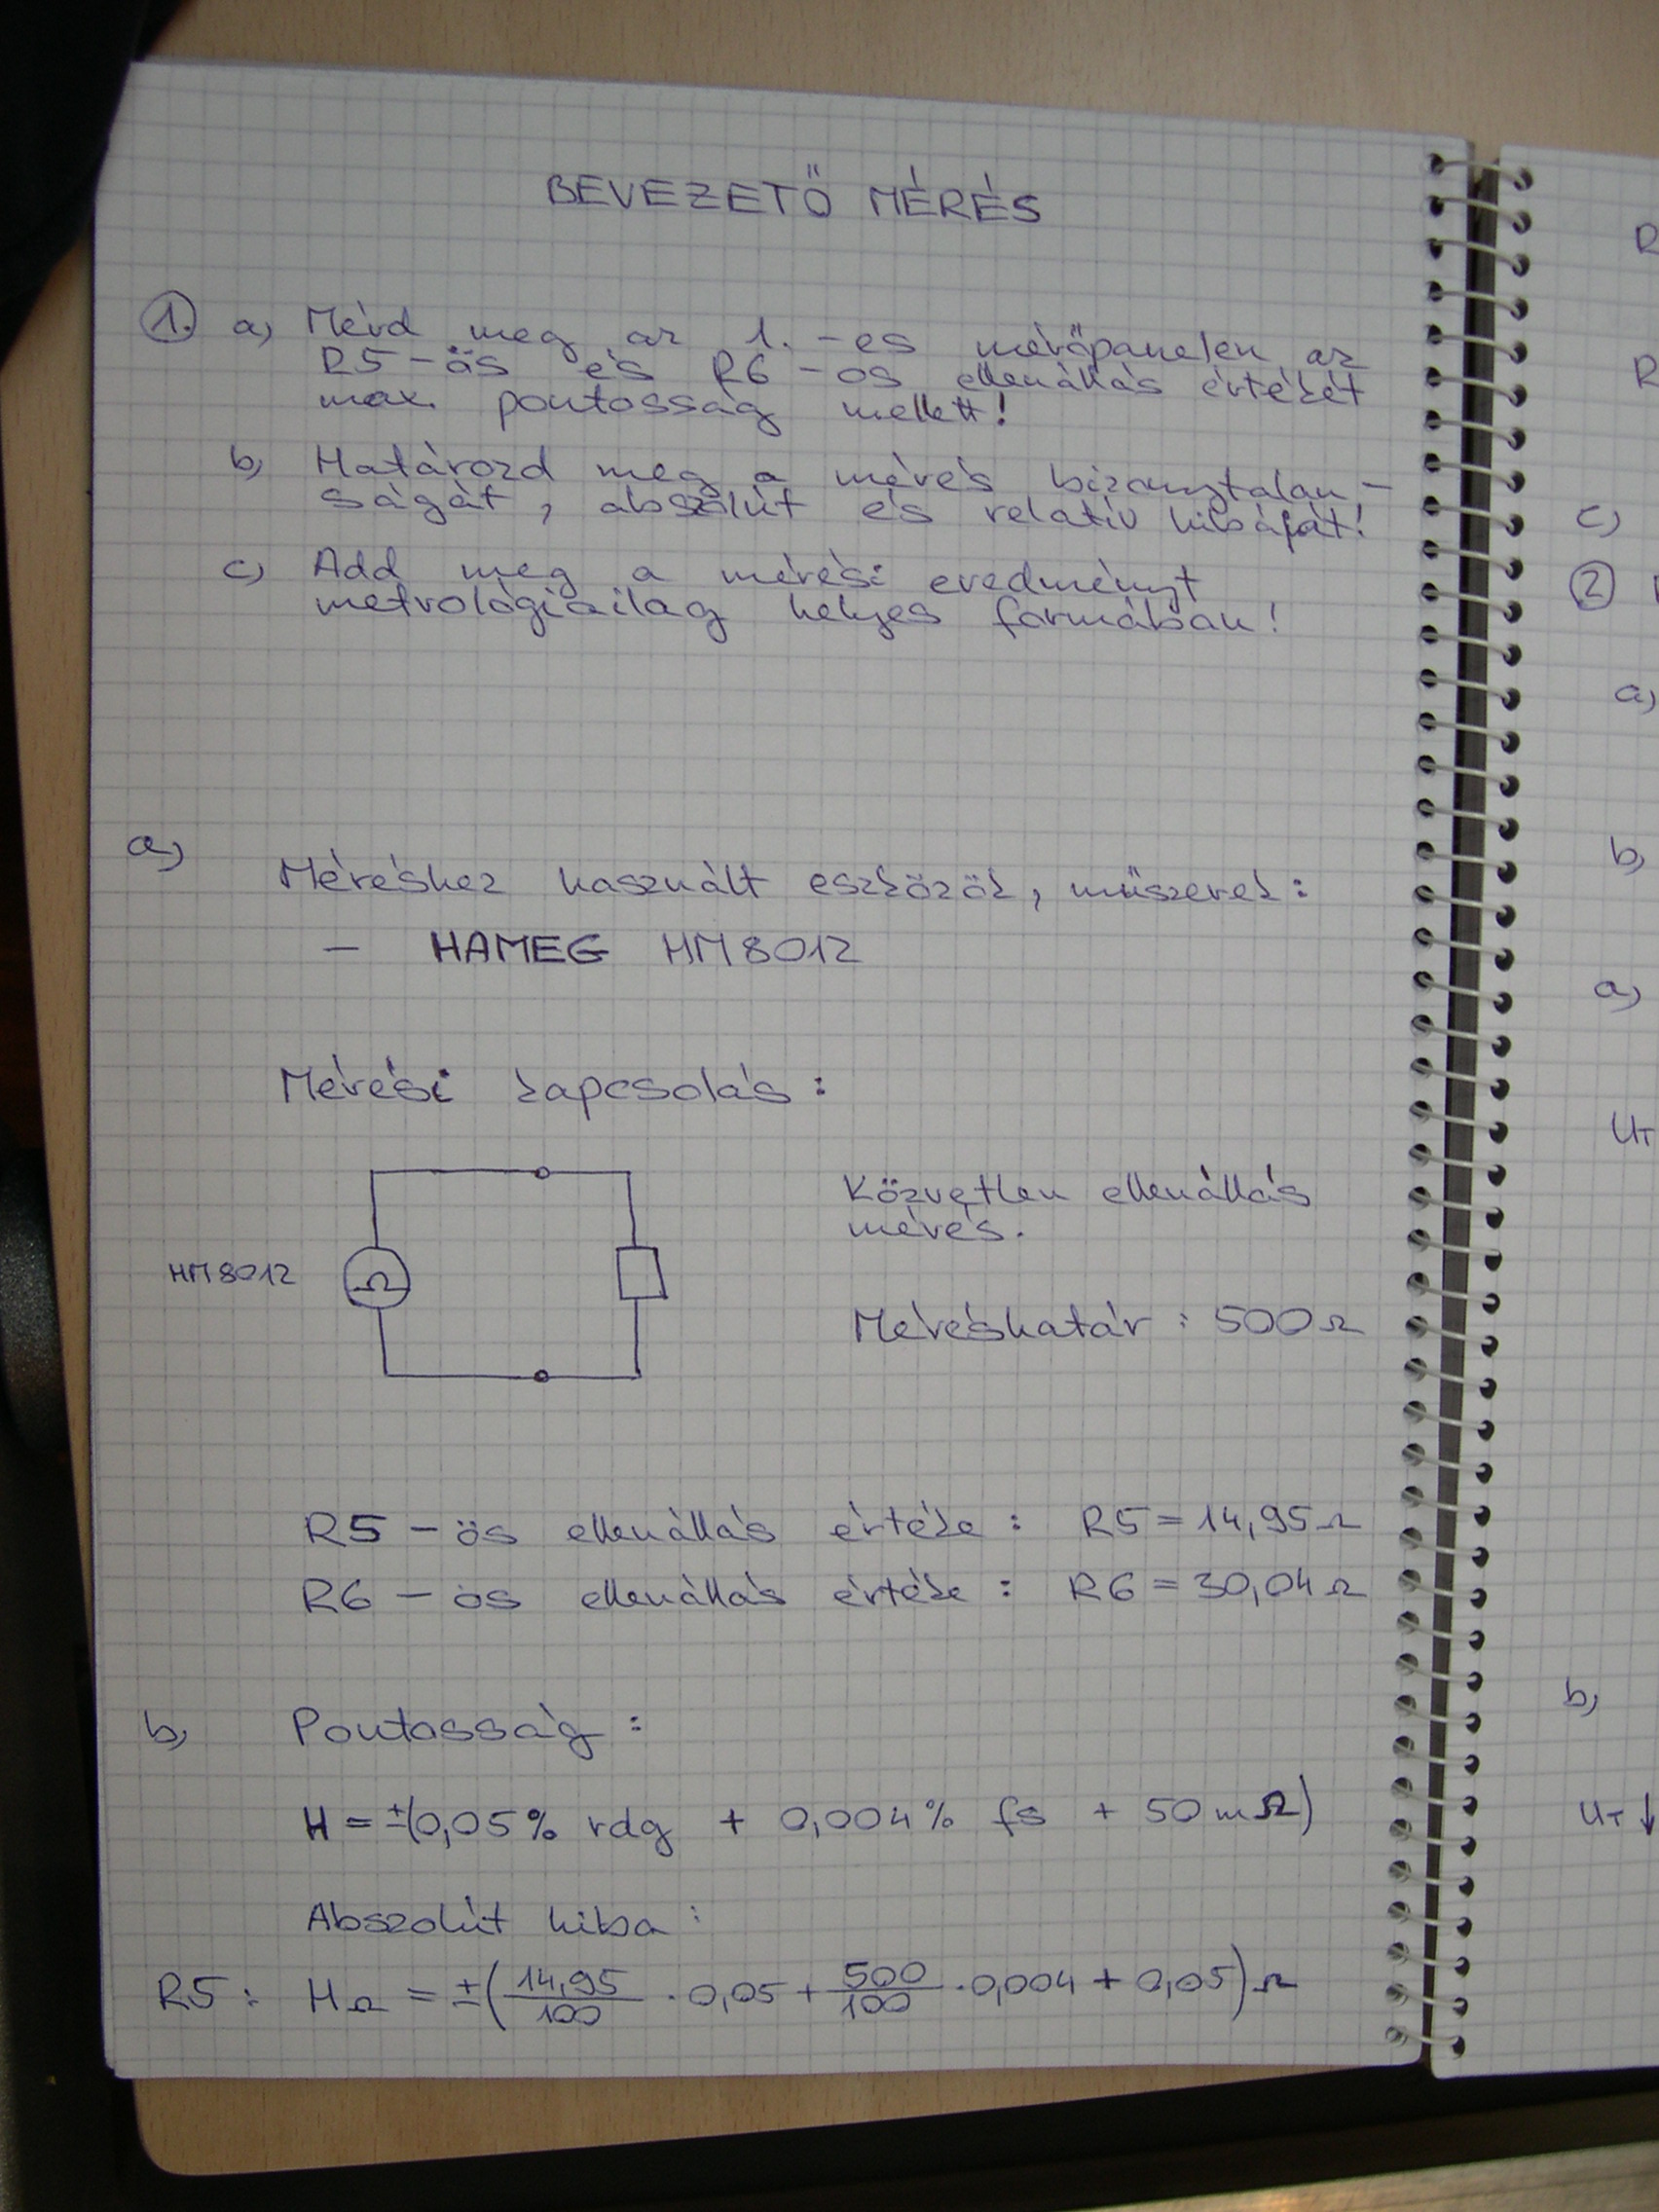 BEVEZETŐ MÉRÉS
1. a) Mérd meg az 1.-es mérőpanelen az
R5-ös és R6-os ellenállás értékét
max. pontosság mellett!
b) Határozd meg a mérés bizonytalan-
ságát, abszolút és relatív hibáját!
c) Add meg a mérési eredményt
metrológiailag helyes formában!
a) Méréshez használt eszközök, műszerek:
- HAMEG HM8012
Mérési kapcsolás:
Közvetlen ellenállás
mérés.
HM8012 Ω
Méréshatár: 500Ω
R5-ös ellenállás értéke: R5=14,95Ω
R6-os ellenállás értéke: R6=30,04Ω
b) Pontosság:
H=±(0,05% rdg + 0,004% fs + 50mΩ)
Abszolút hiba:
R5: HΩ = ±(14,95/100 · 0,05 + 500/100 · 0,004 + 0,05)Ω
R
R
c)
2
a)
b)
a)
UT
b)
UT↓